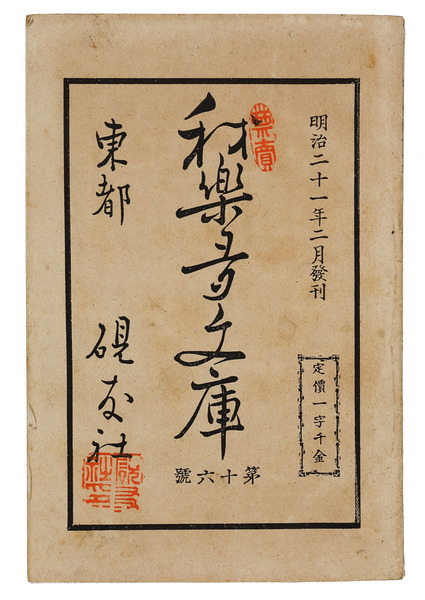 明治二十一年二月發刊
定價一字千金
禁賣
我樂多文庫
第十六號
東都
硯友社